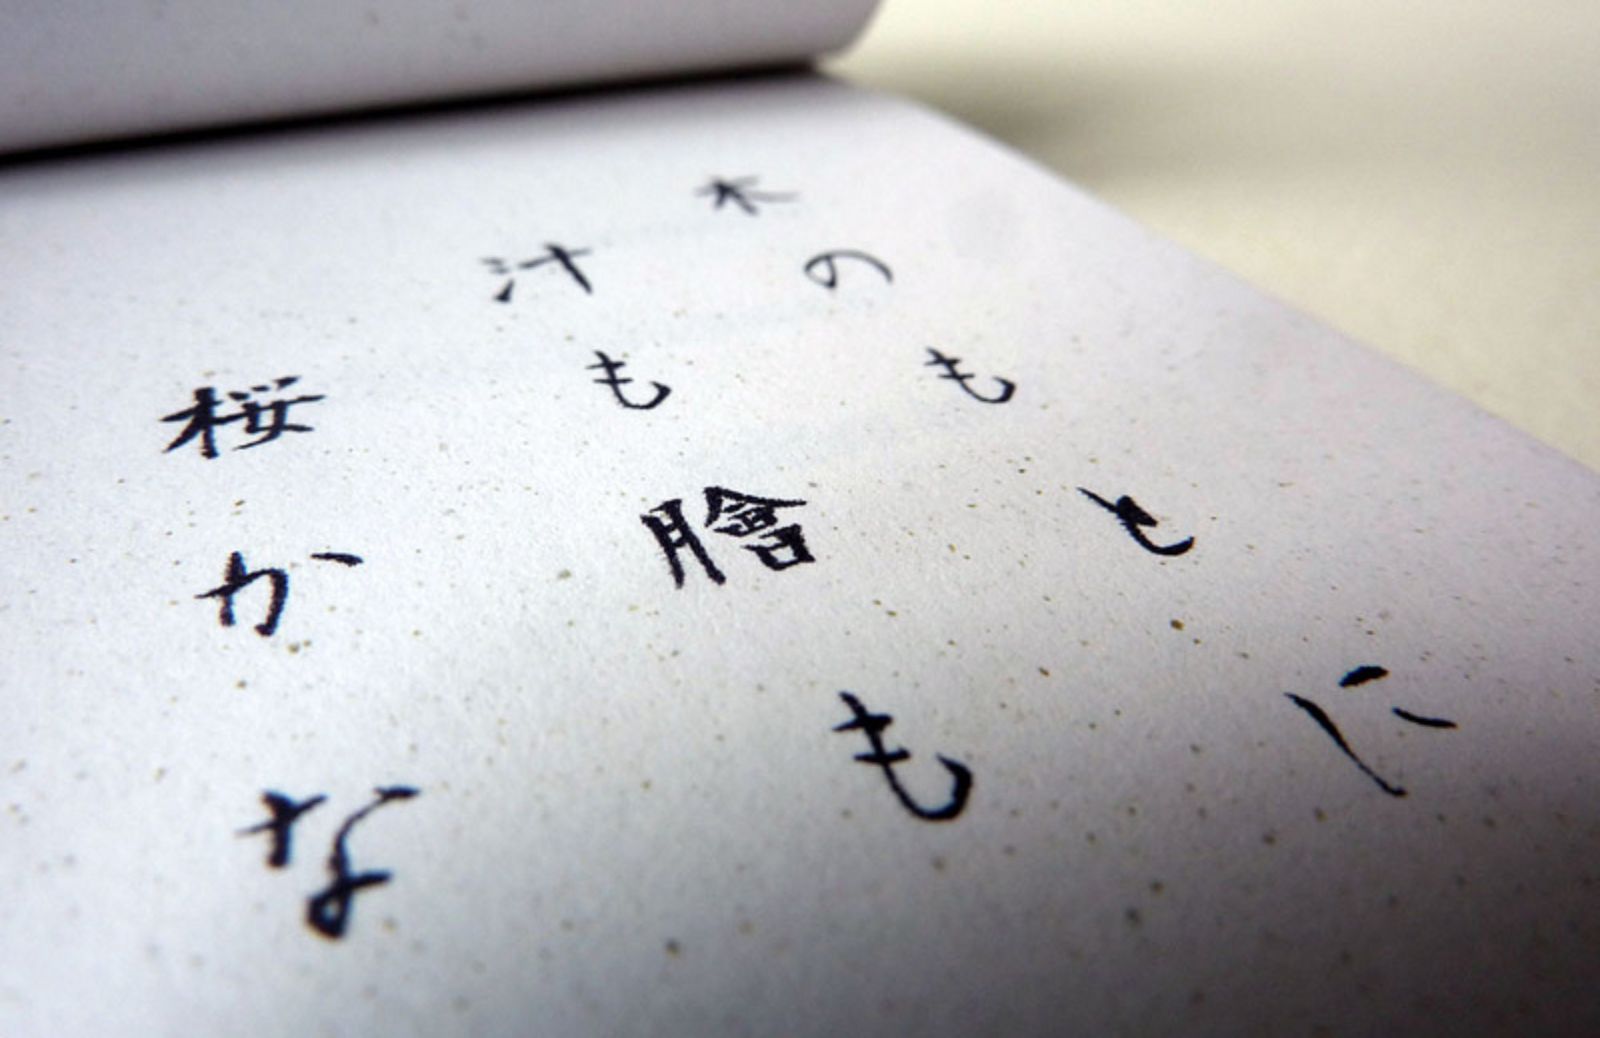 木のもとに
汁も膾も
桜かな